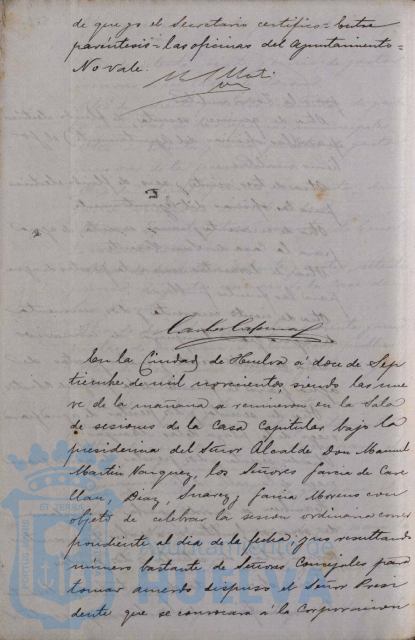 de que yo el Secretario certifico = Entre
paréntesis = las oficinas del Ayuntamiento =
No vale.
En la Ciudad de Huelva á doce de Sep
tiembre de mil novecientos, siendo las nue
ve de la mañana se reunieron en la Sala
de sesiones de la Casa Capitular bajo la
presidencia del Señor Alcalde Don Manuel
Martin Vazquez, los Señores Garcia de Cas
llan, Diaz, Suarez, Garcia Moreno con
objeto de celebrar la sesión ordinaria corres
pondiente al dia de la fecha, y no resultando
número bastante de Señores Concejales para
tomar acuerdo dispuso el Señor Presi
dente que se convocara á la Corporacion
Ayuntamiento de
HUELVA